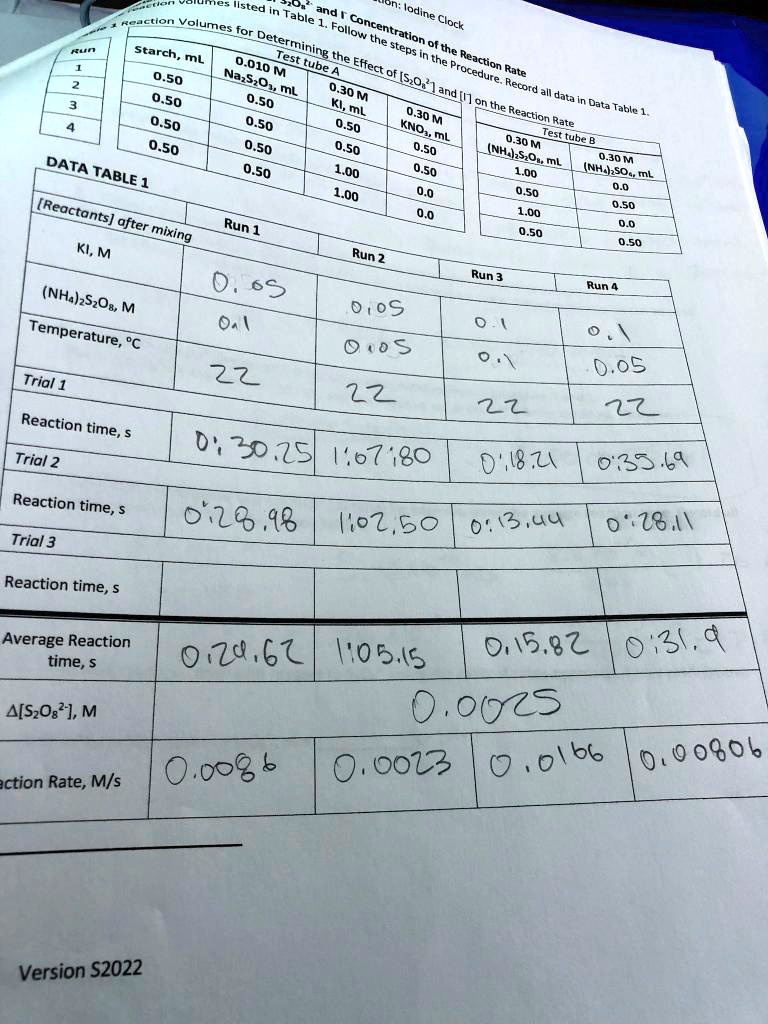 S₂O₈²⁻ and I⁻ Concentration of the Reaction Rate
Iodine Clock
Reaction volumes listed in Table 1. Follow the steps in the Procedure. Record all data in Data Table 1.
Reaction Volumes for Determining the Effect of [S₂O₈²⁻] and [I⁻] on the Reaction Rate
Test tube A
Test tube B
Run Starch, mL 0.010 M Na₂S₂O₃, mL 0.30 M KI, mL 0.30 M KNO₃, mL 0.30 M (NH₄)₂S₂O₈, mL 0.30 M (NH₄)₂SO₄, mL
1 0.50 0.50 0.50 0.50 1.00 0.0
2 0.50 0.50 0.50 0.50 0.50 0.50
3 0.50 0.50 1.00 0.0 1.00 0.0
4 0.50 0.50 1.00 0.0 0.50 0.50
DATA TABLE 1
[Reactants] after mixing Run 1 Run 2 Run 3 Run 4
KI, M 0.05 0.05 0.1 0.1
(NH₄)₂S₂O₈, M 0.1 0.05 0.1 0.05
Temperature, °C 22 22 22 22
Trial 1
Reaction time, s 0:30.25 1:07:80 0:18.21 0:35.69
Trial 2
Reaction time, s 0:28.98 1:02.50 0:13.44 0:28.11
Trial 3
Reaction time, s
Average Reaction time, s 0:29.62 1:05.15 0.15.82 0:31.9
Δ[S₂O₈²⁻], M 0.0025
ction Rate, M/s 0.0086 0.0023 0.0166 0.00806
Version S2022